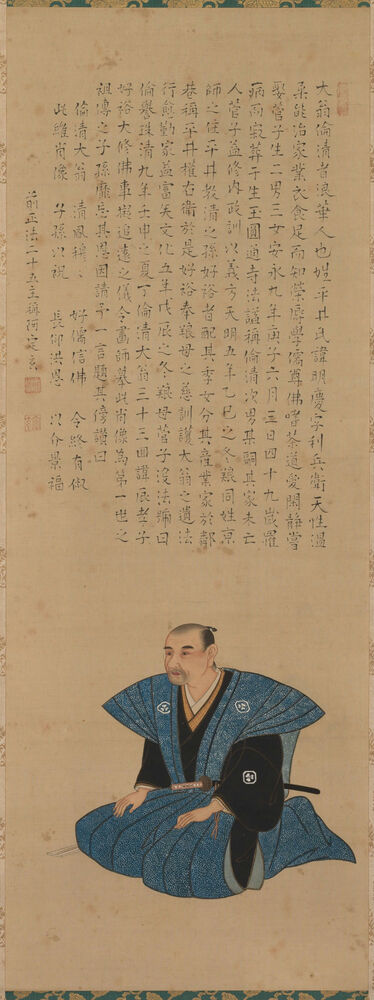 大翁倫清者浪華人也姓平井氏諱明慶字利兵衛天性温
柔能治家業衣食足而知榮辱學儒尊佛嗜茶道愛閑静嘗
娶菅子生二男三女安永九年庚子六月三日四十九歲罹
病而寂葬于生玉圓通寺法諡稱倫清次男某嗣其家未亡
人菅子益修内政訓以義方天明五年乙巳之冬親同姓京
師之住平井教清之孫好裕者配其季女分其産業家於鄰
巷稱平井權右衛於是好裕奉親母之慈訓護大翁之遺法
行愈勤家益富矣文化五年戊辰之冬親母菅子没法號曰
倫譽珠清九年壬申之夏丁倫清大翁三十三回諱辰孝子
好裕大修佛事擬追遠之儀令畫師摹此肖像為第一世之
祖傳之子孫靡忘其恩因請予一言題其傍讃曰
倫清大翁 清風穆々 好儒信佛 令終有俶
此雖肖像 子孫以祝 長仰洪恩 以介景福
前正法二十五主